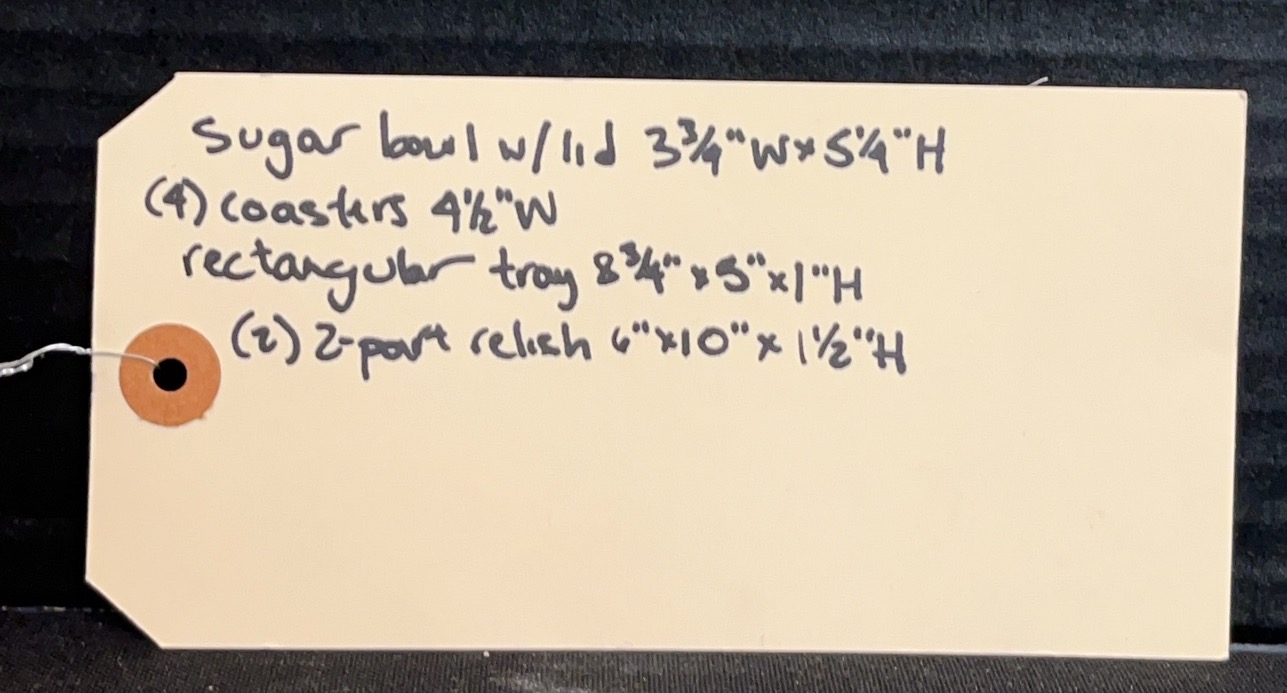 Sugar bowl w/ lid 3 3/4" W x 5 1/4" H
(4) coasters 4 1/2" W
rectangular tray 8 3/4" x 5" x 1" H
(2) 2-part relish 6" x 10" x 1 1/2" H